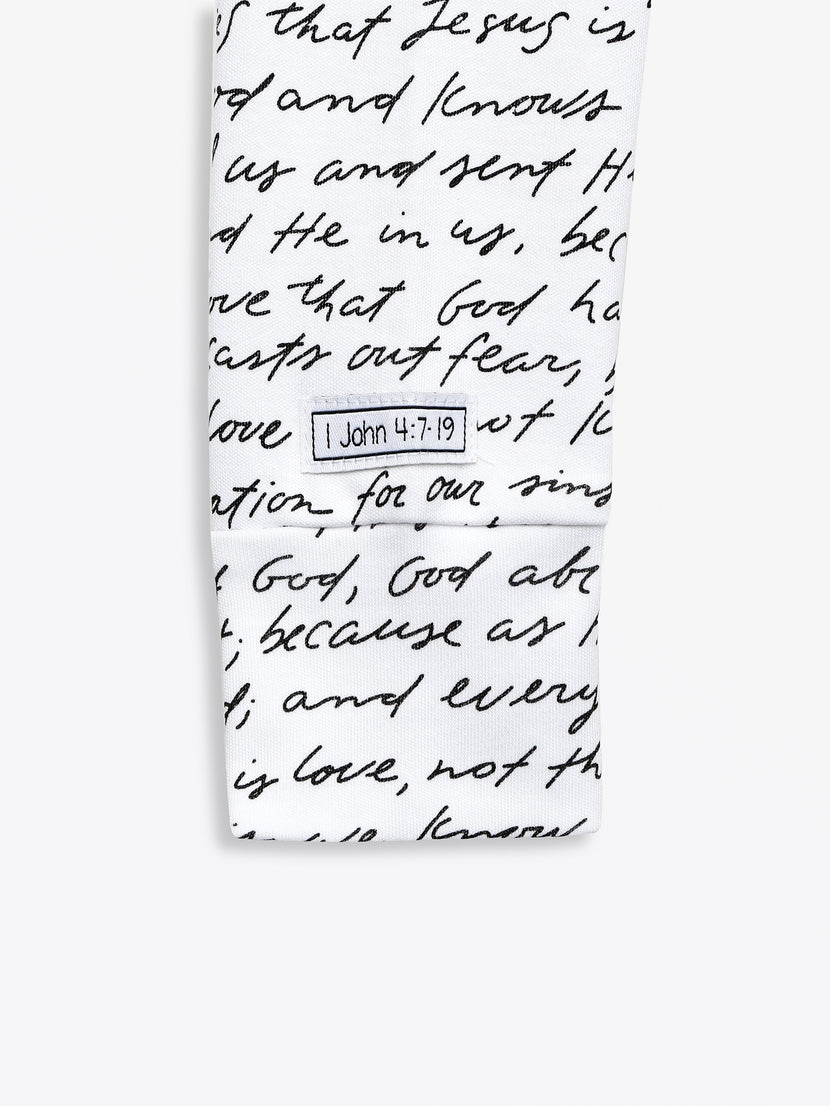 that Jesus is
and knows
us and sent
He in us, bec
ove that God ha
casts out fear,
love not k
1 John 4:7-19
ation for our sins
God, God abi
; because as
; and every
is love, not th
we know